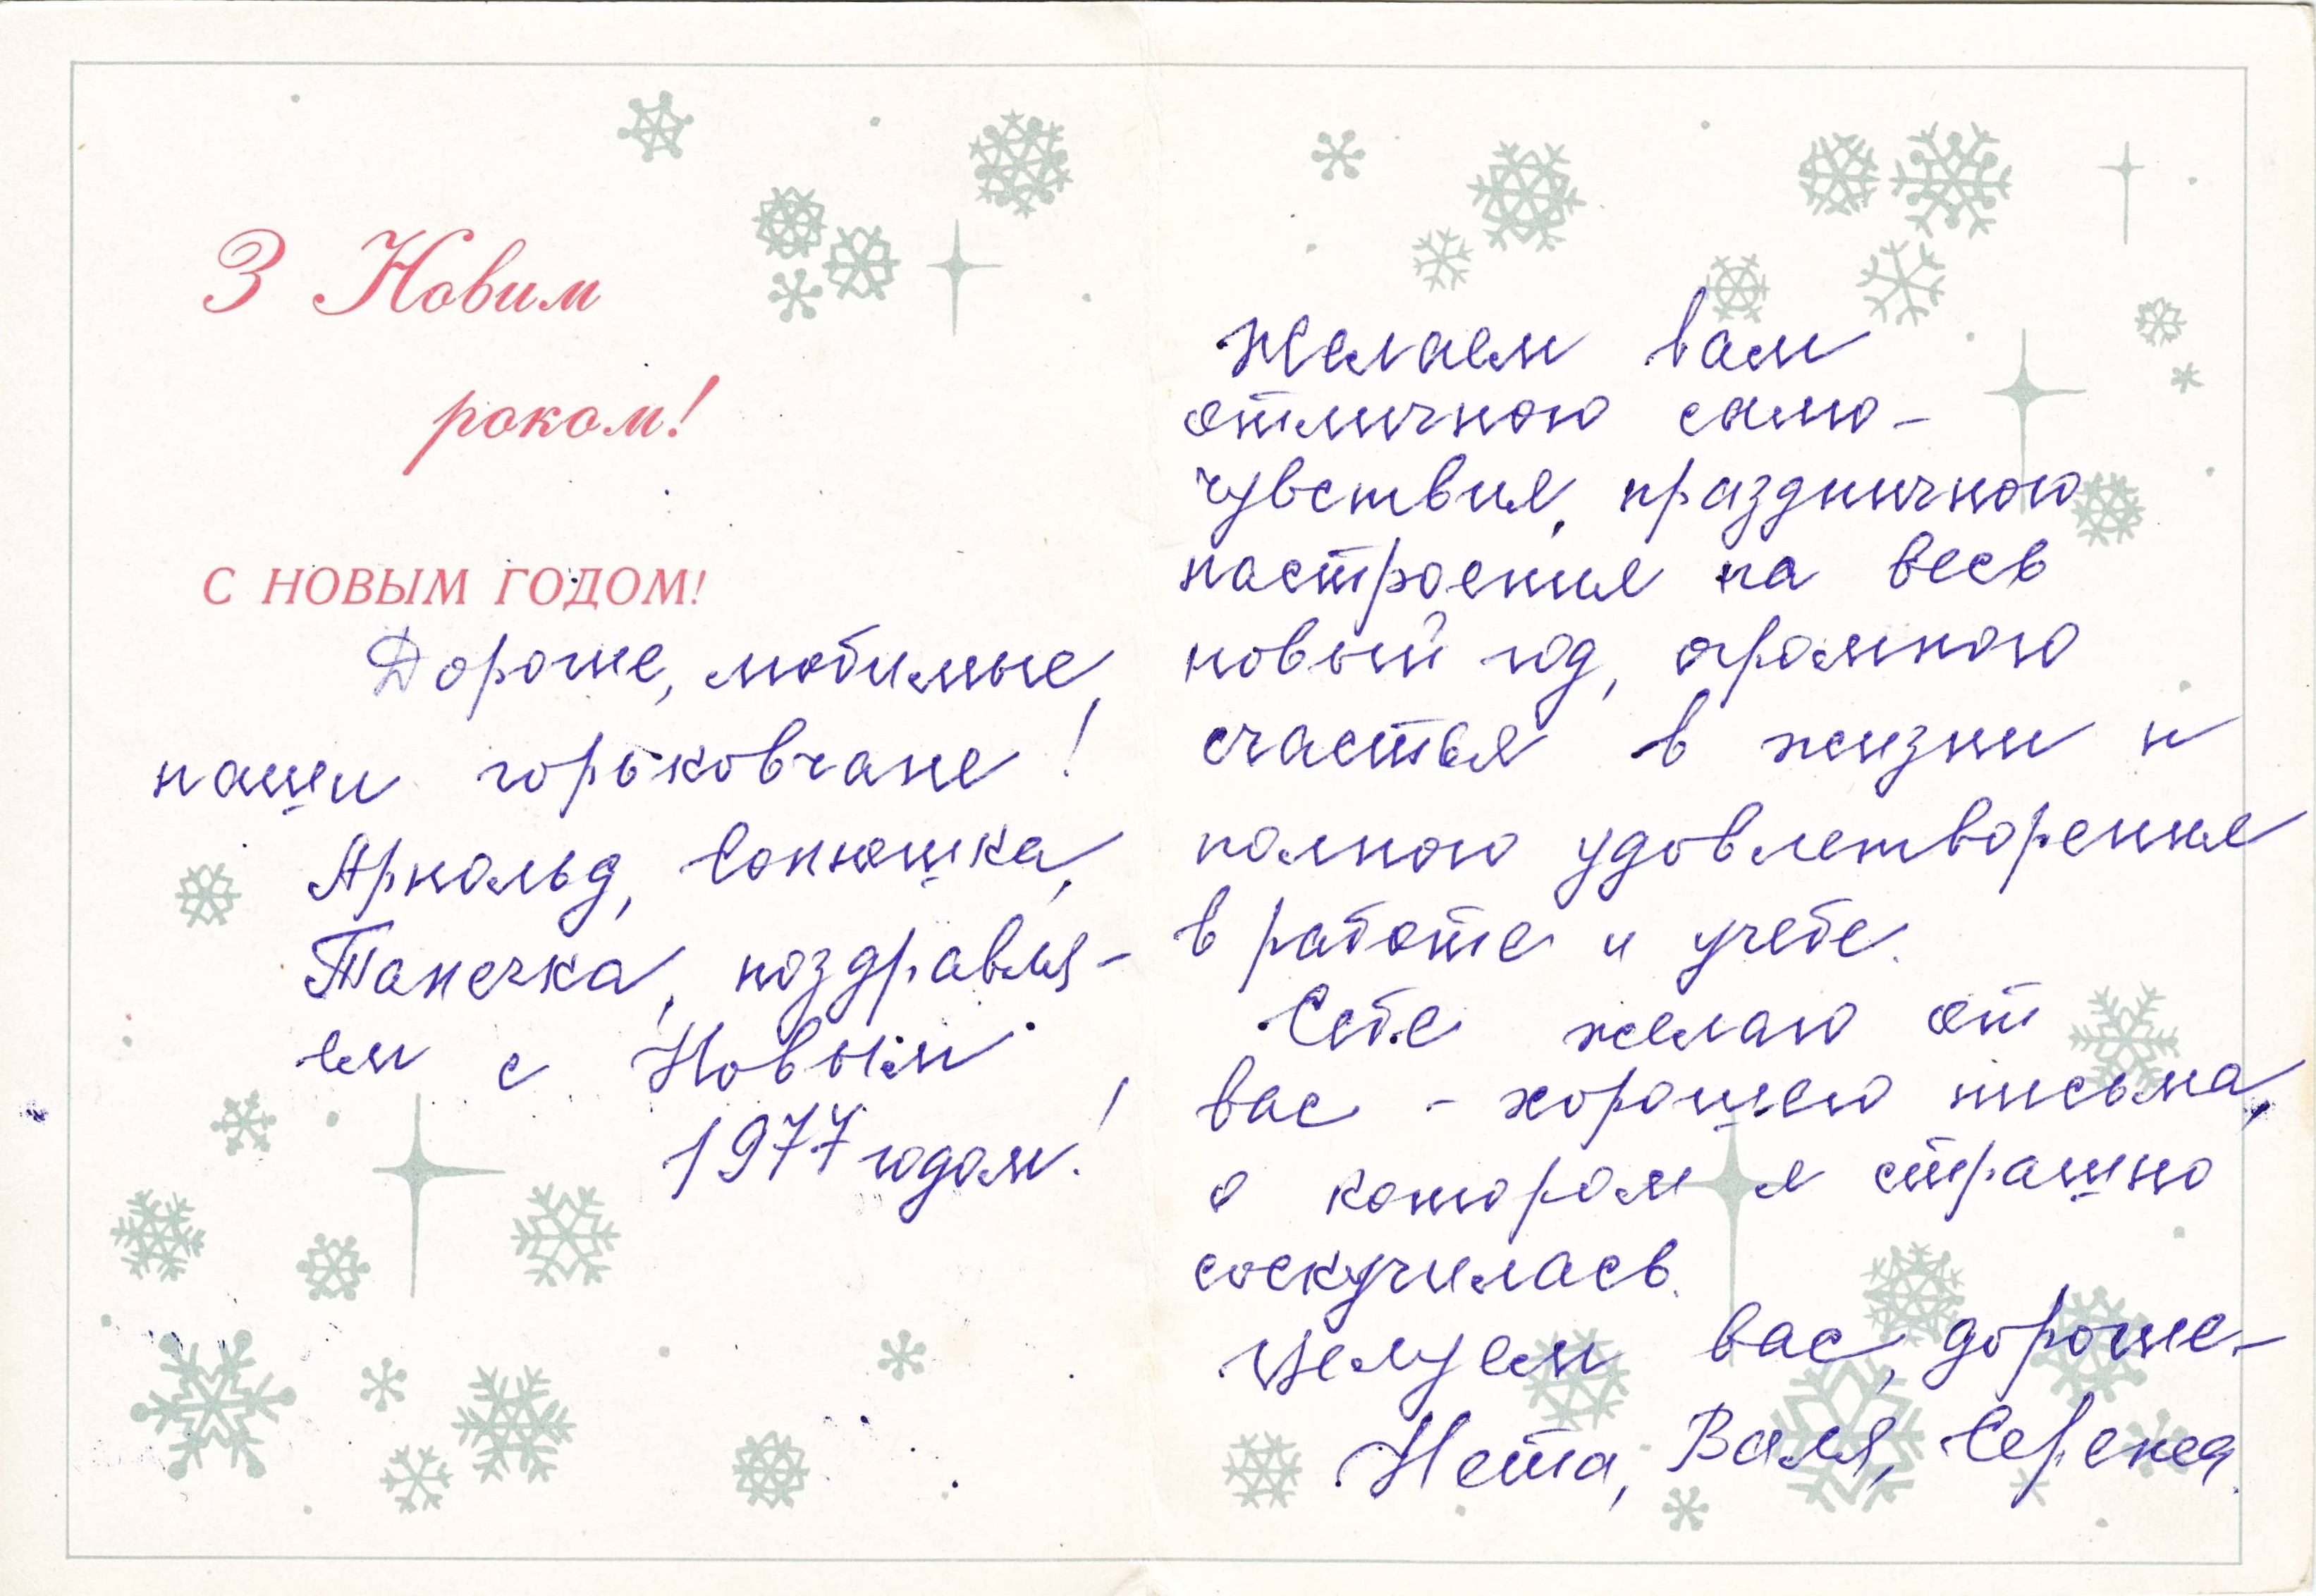 З Новим
роком!
С НОВЫМ ГОДОМ!
Дорогие, любимые,
наши горьковчане!
Арнольд, Сонюшка,
Танечка, поздравля-
ем с Новым
1977 годом!
Желаем вам
отличного само-
чувствия, праздничного
настроения на весь
новый год, огромного
счастья в жизни и
полного удовлетворения
в работе и учебе.
Себе желаю от
вас - хорошего письма,
о котором я страшно
соскучилась.
Целуем вас, дорогие-
Нета, Валя, Сережа.